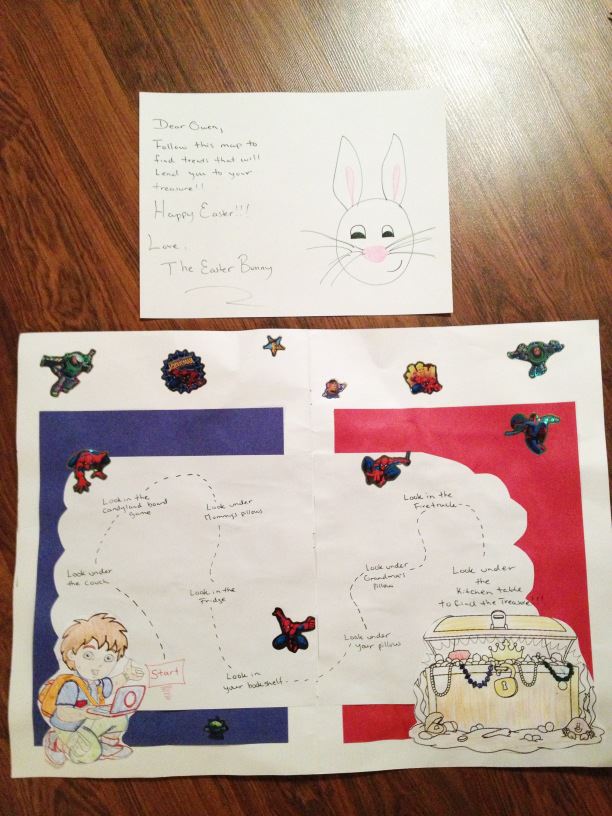 Dear Owen,
Follow this map to
find treats that will
lead you to your
treasure!!
Happy Easter!!!
Love,
The Easter Bunny
Start
Look under
the couch
Look in the
Candyland board
game
Look under
Mommy's pillows
Look in the
Fridge
Look in
your bookshelf
Look under
your pillow
Look under
Grandma's
pillow
Look in the
Firetruck
Look under
the
Kitchen table
to find the Treasure!!!